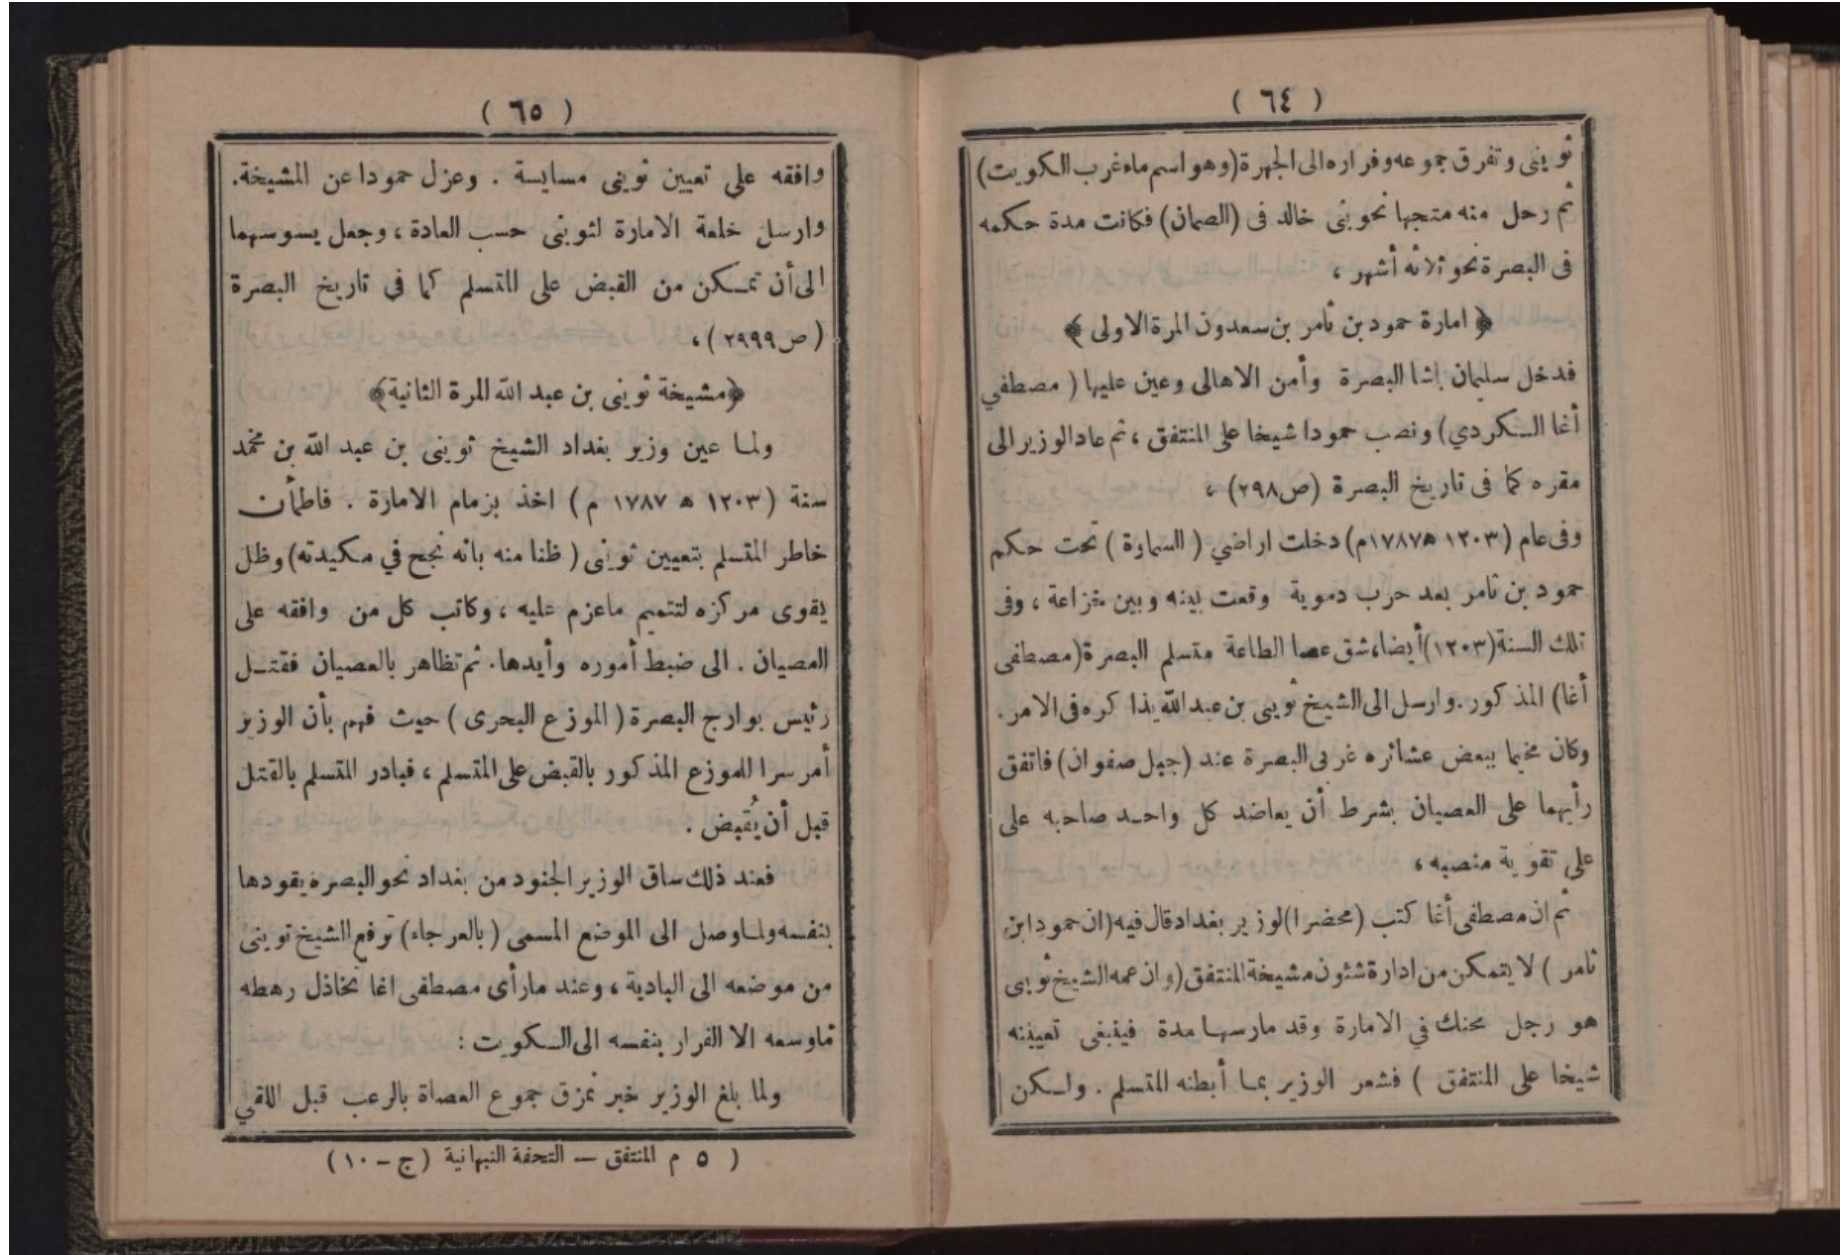 ( ٦٤ )
ثوينى وتفرق جموعه وفراره الى الجهرة (وهو اسم ماء غرب الكويت)
ثم رحل منه متجها نحو بنى خالد فى (الصمان) فكانت مدة حكمه
فى البصرة نحو ثلاثه أشهر ،
﴿ امارة حمود بن ثامر بن سعدون المرة الاولى ﴾
فدخل سليمان باشا البصرة وأمن الاهالى وعين عليها ( مصطفي
أغا الكردي) ونصب حمودا شيخا على المنتفق ، ثم عاد الوزير الى
مقره كما فى تاريخ البصرة (ص٢٩٨) ،
وفى عام (١٢٠٣ ه ١٧٨٧م) دخلت اراضي ( السماوة ) تحت حكم
حمود بن ثامر بعد حرب دموية وقعت بينه وبين خزاعة ، وفى
تلك السنة (١٢٠٣) أيضا، شق عصا الطاعة متسلم البصرة (مصطفى
أغا) المذكور . وارسل الى الشيخ ثوينى بن عبد الله يذاكره فى الامر.
وكان مخيما ببعض عشائره غربى البصرة عند (جبل صفوان) فاتفق
رأيهما على العصيان بشرط أن يعاضد كل واحد صاحبه على
على تقوية منصبه ،
ثم ان مصطفى أغا كتب (محضرا) لوزير بغداد قال فيه (ان حمود ابن
ثامر ) لا يتمكن من ادارة شئون مشيخة المنتفق (وان عمه الشيخ ثوينى
هو رجل محنك في الامارة وقد مارسها مدة فينبغى تعيينه
شيخا على المنتفق ) فشعر الوزير بما أبطنه المتسلم . ولكن
( ٦٥ )
وافقه على تعيين ثوينى مسايسة . وعزل حمودا عن المشيخة.
وارسل خلعة الامارة لثوينى حسب العادة ، وجعل يسوسهما
الى أن تمكن من القبض على المتسلم كما فى تاريخ البصرة
( ص ٢٩٩٩) ،
﴿مشيخة ثوينى بن عبد الله المرة الثانية﴾
ولما عين وزير بغداد الشيخ ثوينى بن عبد الله بن محمد
سنة ( ١٢٠٣ ه ١٧٨٧ م ) اخذ بزمام الامارة . فاطمأن
خاطر المتسلم بتعيين ثوينى ( ظنا منه بانه نجح في مكيدته) وظل
يقوى مركزه لتتميم ماعزم عليه ، وكاتب كل من وافقه على
العصيان . الى ضبط أموره وأيدها. ثم تظاهر بالعصيان فقتل
رئيس بوارج البصرة ( الموزع البحرى ) حيث فهم بأن الوزير
أمر سرا للموزع المذكور بالقبض على المتسلم ، فبادر المتسلم بالقتل
قبل أن يُقبض .
فعند ذلك ساق الوزير الجنود من بغداد نحو البصره يقودها
بنفسه ولما وصل الى الموضع المسمى ( بالعرجاء) ترفع الشيخ ثوينى
من موضعه الى البادية ، وعند مارأى مصطفى اغا تخاذل رهطه
فاوسعه الا الفرار بنفسه الى الكويت :
ولما بلغ الوزير خبر تمزق جموع العصاة بالرعب قبل اللقي
( ٥ م المنتفق — التحفة النبهانية (ج – ١٠ )